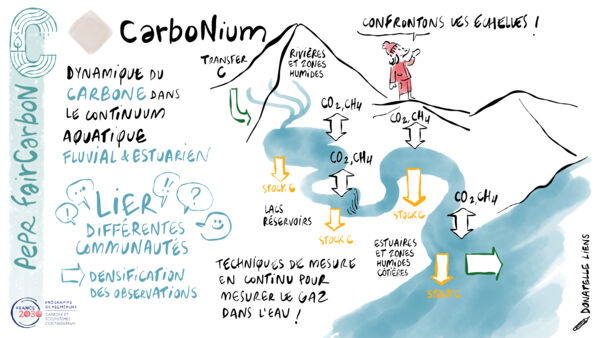 PEPR FairCarboN
CarboNium
DYNAMIQUE DU
CARBONE DANS
LE CONTINUUM
AQUATIQUE
FLUVIAL & ESTUARIEN
LIER
DIFFÉRENTES
COMMUNAUTÉS
DENSIFICATION
DES OBSERVATIONS
FRANCE
2030
TRANSFER
C
RIVIÈRES
ET ZONES
HUMIDES
CONFRONTONS LES ÉCHELLES !
CO2, CH4
CO2, CH4
CO2, CH4
CO2, CH4
STOCK C
STOCK C
STOCK C
STOCK C
LACS
RÉSERVOIRS
ESTUAIRES
ET ZONES
HUMIDES
CÔTIÈRES
TECHNIQUES DE MESURE
EN CONTINU POUR
MESURER LE GAZ
DANS L'EAU !
DONATELLE LIENS